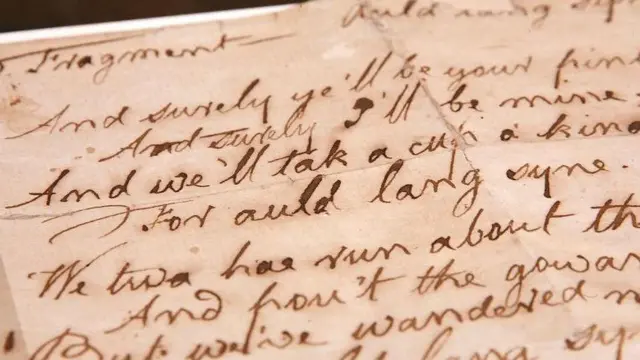 Auld lang syn
Fragment
And surely ye'll be your pint
And surely I'll be mine.
And we'll tak a cup o kind
For auld lang syne.
We twa hae run about th
And pou't the gowan
But we've wandered m
lang sy